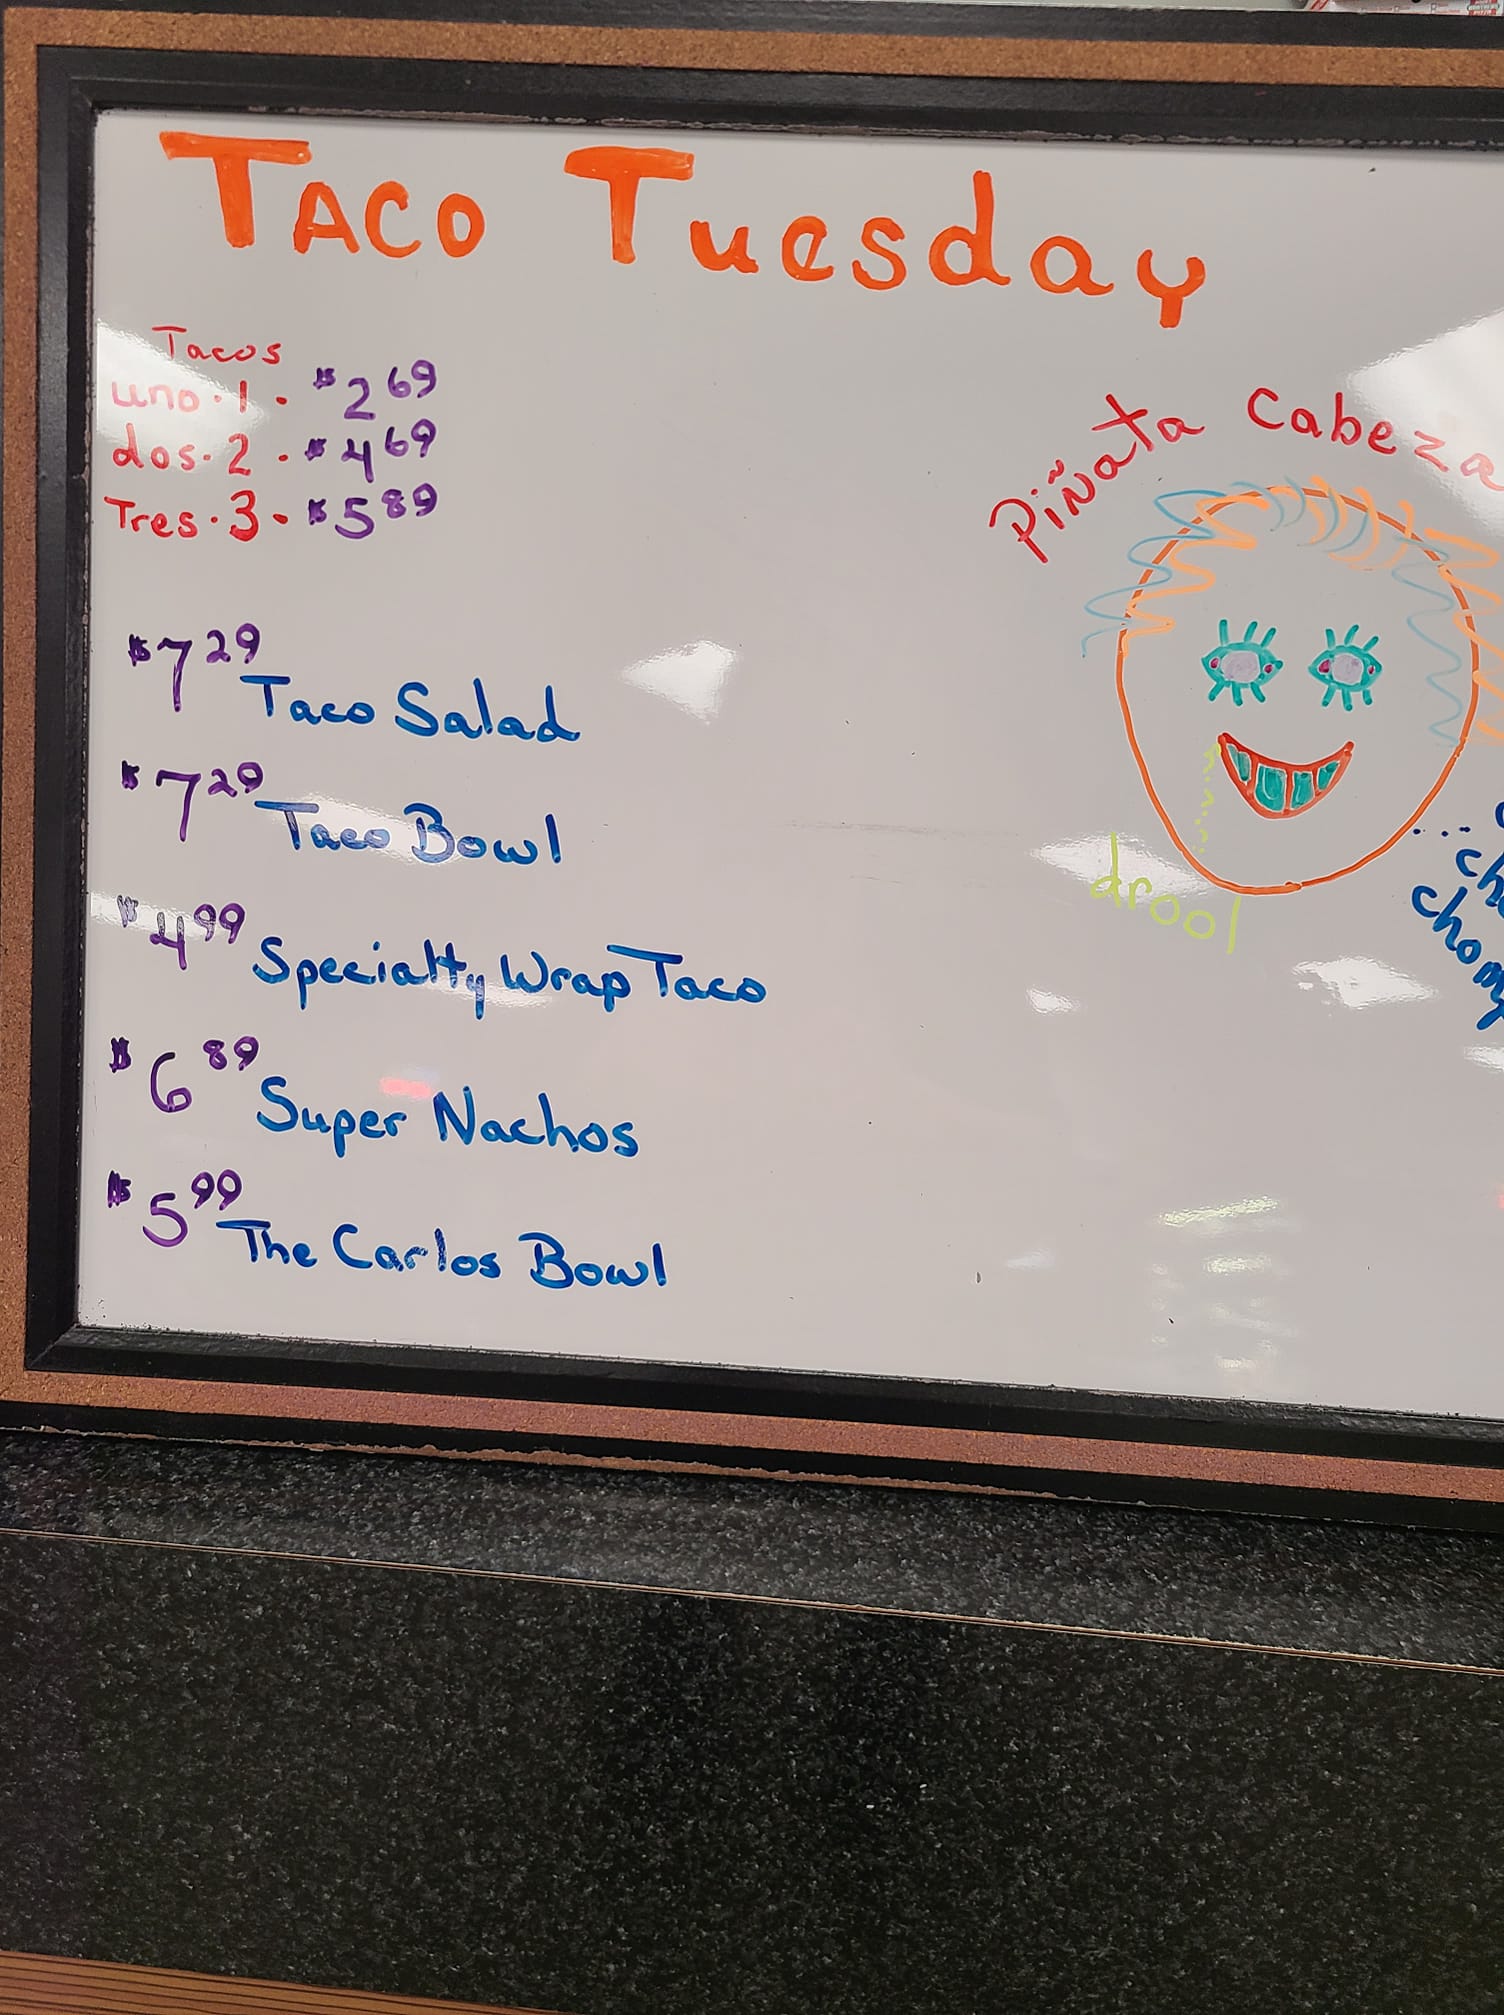 Taco Tuesday
Tacos
uno · 1 · $2 69
dos · 2 · $4 69
Tres · 3 · $5 89
$7 29 Taco Salad
$7 29 Taco Bowl
$4 99 Specialty Wrap Taco
$6 89 Super Nachos
$5 99 The Carlos Bowl
Piñata Cabeza
drool